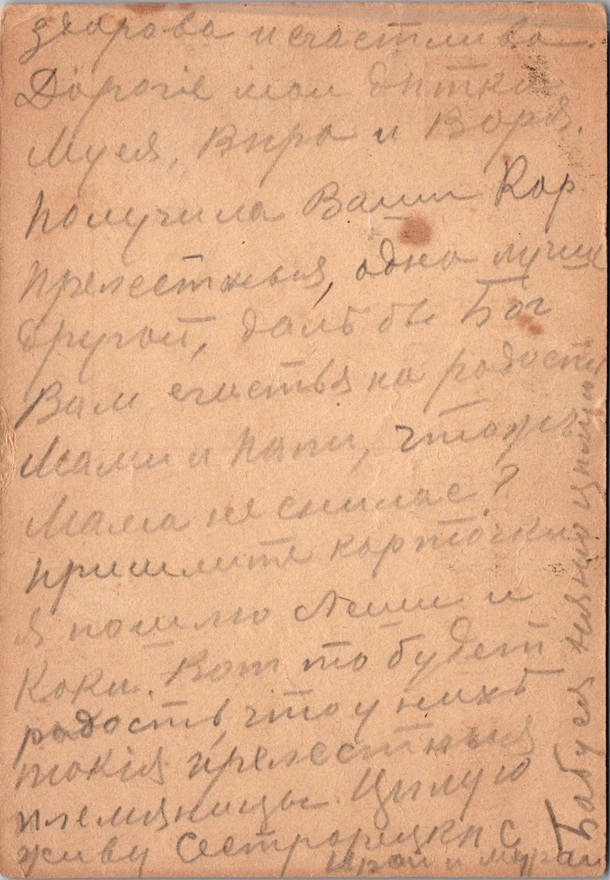 здорова и счастлива.
Дорогіе мои дѣтки
Муся, Вира и Варя.
получила Ваши Кар
прелестныя, одна лучше
другой, далъ бы Бог
Вам счастья на радость
Мами и папи, что жъ
Мама не снилас?
пришлите карточки
я пошлю Леши и
Коки. Вот то будет
радость, что у нихъ
такія прелестныя
племяницы. Цилую
живу Сестрорецки с
Ирой и
Бабуся няню цилую